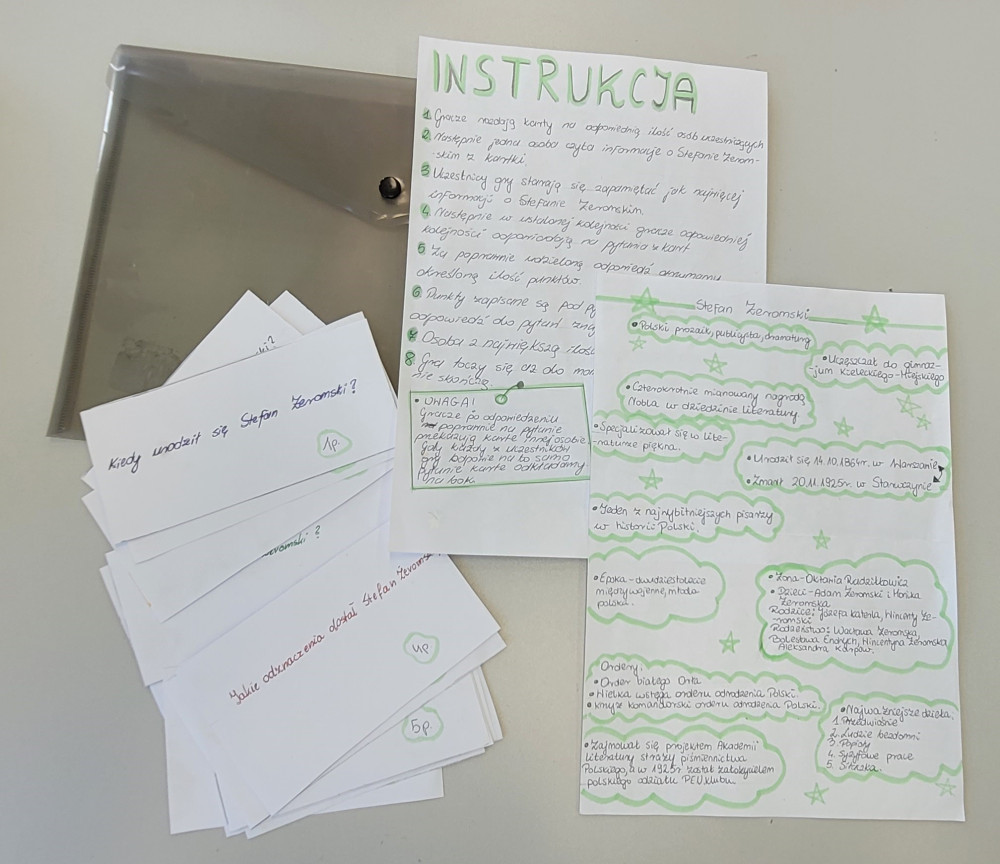 INSTRUKCJA
1. Gracze rozdają karty na odpowiednią ilość osób uczestniczących
2. Następnie jedna osoba czyta informacje o Stefanie Żerom-
-skim z kartki.
3 Uczestnicy gry starają się zapamiętać jak najwięcej
informacji o Stefanie Żeromskim.
4. Następnie w ustalonej kolejności gracze odpowiedniej
kolejności odpowiadają na pytania z kart
5. Za poprawnie udzieloną odpowiedź otrzymamy
określoną ilość punktów.
6 Punkty zapisane są pod
odpowiedź do pytań
7 Osoba z największą
8. Gra toczy się aż do
nie skończą.
• UWAGA!
Gracze po odpowiedzeniu
poprawnie na pytanie
przekazują kartę innej osobie
Gdy każdy z uczestników
gry odpowie na to samo
pytanie kartę odkładamy
na bok.
Stefan Żeromski
• Polski prozaik, publicysta, dramaturg
• Uczęszczał do gimnaz-
-jum Kieleckiego-Miejskiego
• Czterokrotnie mianowany nagrodą
Nobla w dziedzinie literatury.
• Specjalizował się w lite-
-raturze pięknej.
• Urodził się 14.10.1864r. w Warszawie
• Zmarł 20.11.1925r. w Starwczynie
• Jeden z najwybitniejszych pisarzy
w historii Polski.
• Epoka - dwudziestolecie
międzywojenne, młoda
polska.
• Żona - Oktawia Radziłłowicz
• Dzieci - Adam Żeromski i Monika
Żeromska
Rodzice: Józefa Katerla, Wincenty Że-
-romski
Rodzeństwo: Wacława Żeromska,
Bolesława Endrych, Wincentyna Żeromska
Aleksandra
Ordery:
• Order białego Orła
• Wielka wstęga orderu odrodzenia Polski.
• Krzyż komandorski orderu odrodzenia Polski.
• Najważniejsze dzieła,
1. Przedwiośnie
2. Ludzie bezdomni
3. Popioły
4. Syzyfowe prace
5. Siłaczka.
• Zajmował się projektem Akademii
literatury straży piśmiennictwa
Polskiego, a w 1925r został założycielem
polskiego odziału PEN klubu.
Kiedy urodził się Stefan Żeromski?
1p.
Jakie odznaczenia dostał Stefan
4p
5p.